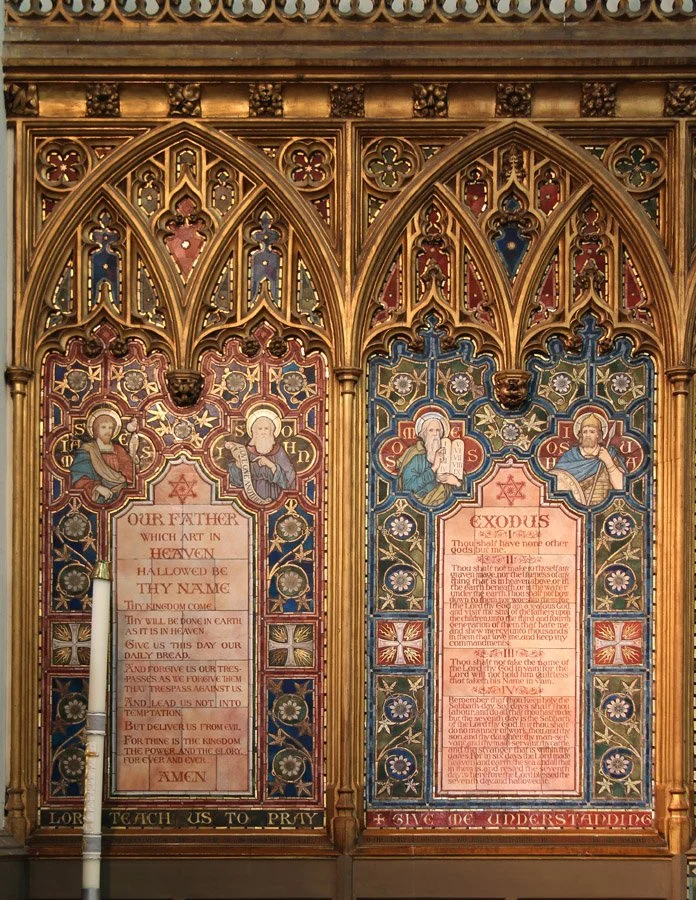 S IAMES
S IOHN
OUR FATHER
WHICH ART IN
HEAVEN
HALLOWED BE
THY NAME
THY KINGDOM COME.
THY WILL BE DONE IN EARTH
AS IT IS IN HEAVEN.
GIVE US THIS DAY OUR
DAILY BREAD.
AND FORGIVE US OUR TRES-
PASSES AS WE FORGIVE THEM
THAT TRESPASS AGAINST US.
AND LEAD US NOT INTO
TEMPTATION,
BUT DELIVER US FROM EVIL.
FOR THINE IS THE KINGDOM
THE POWER AND THE GLORY,
FOR EVER AND EVER.
AMEN
LORD TEACH US TO PRAY
MOSES
VI
VII
VIII
IOSHUA
EXODUS
I
Thou shalt have none other
gods but me.
II
Thou shalt not make to thyself any
graven image, nor the likeness of any
thing that is in heaven above, or in
the earth beneath, or in the water
under the earth. Thou shalt not bow
down to them, nor worship them: for
I the Lord thy God am a jealous God,
and visit the sins of the fathers upon
the children unto the third and fourth
generation of them that hate me
and shew mercy unto thousands
in them that love me, and keep my
commandments.
III
Thou shalt not take the name of
the Lord thy God in vain: for the
Lord will not hold him guiltless
that taketh his Name in vain.
IV
Remember that thou keep holy the
Sabbath-day. Six days shalt thou
labour, and do all that thou hast to do
but the seventh day is the Sabbath
of the Lord thy God. In it thou shalt
do no manner of work, thou, and thy
son, and thy daughter, thy man-ser-
vant, and thy maid-servant, thy cattle,
and the stranger that is within thy
gates. For in six days the Lord made
heaven and earth, the sea, and all that
in them is, and rested the seventh
day: wherefore the Lord blessed the
seventh day, and hallowed it.
GIVE ME UNDERSTANDING